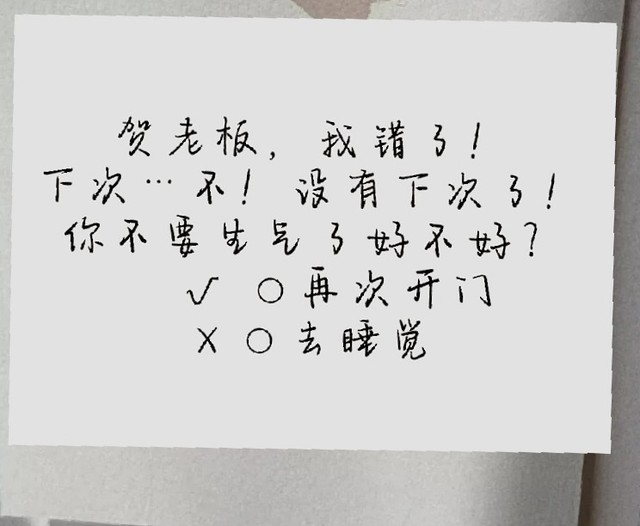 贺老板，我错了！
下次…不！没有下次了！
你不要生气了好不好？
√ ○再次开门
X ○去睡觉